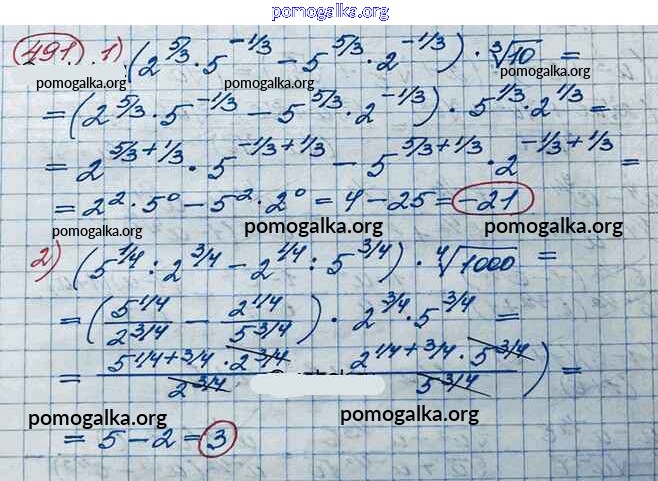 pomogalka.org
491.) 1) (2^5/3 · 5^-1/3 - 5^5/3 · 2^-1/3) · ∛10 =
pomogalka.org pomogalka.org pomogalka.org
= (2^5/3 · 5^-1/3 - 5^5/3 · 2^-1/3) · 5^1/3 · 2^1/3 =
= 2^5/3+1/3 · 5^-1/3+1/3 - 5^5/3+1/3 · 2^-1/3+1/3 =
= 2² · 5⁰ - 5² · 2⁰ = 4 - 25 = -21
pomogalka.org pomogalka.org pomogalka.org
2) (5^1/4 : 2^3/4 - 2^1/4 : 5^3/4) · ∜1000 =
= (5^1/4 / 2^3/4 - 2^1/4 / 5^3/4) · 2^3/4 · 5^3/4 =
= 5^1/4+3/4 · 2^3/4 / 2^3/4 2^1/4+3/4 · 5^3/4 / 5^3/4 ) =
pomogalka.org pomogalka.org
= 5 - 2 = 3